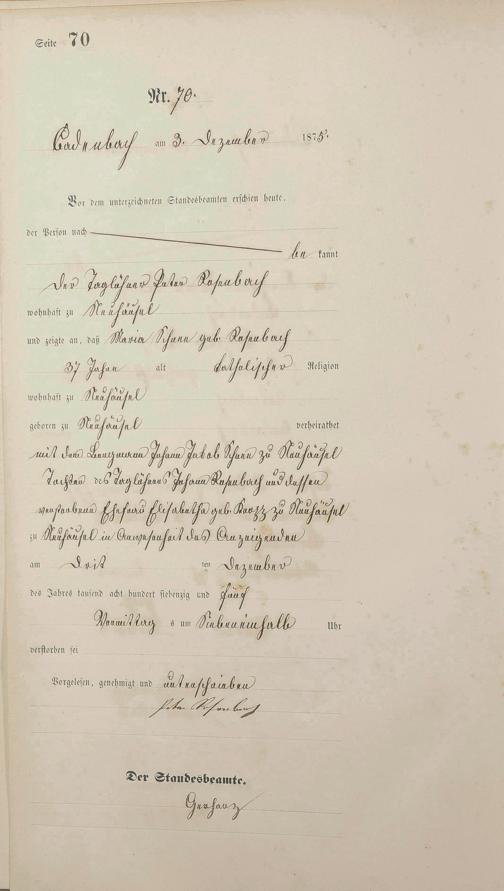 Seite 70
Nr. 70.
Cadenbach am 3. Dezember 1875.
Vor dem unterzeichneten Standesbeamten erschien heute,
der Person nach
be kannt
der Taglöhner Peter Rosenbach
wohnhaft zu Neuhäusel
und zeigte an, daß Maria Schnee geb. Rosenbach
37 Jahre alt katholischer Religion
wohnhaft zu Neuhäusel
geboren zu Neuhäusel verheirathet
mit dem Bergmann Johann Jakob Schnee zu Neuhäusel
Tochter des Taglöhners Johann Rosenbach und dessen
verstorbene Ehefrau Elisabetha geb. zu Neuhäusel
zu Neuhäusel in Anwesenheit des Anzeigenden
am Drit ten Dezember
des Jahres tausend acht hundert siebenzig und fünf
Vormittag s um Siebeneinhalb Uhr
verstorben sei
Vorgelesen, genehmigt und unterschrieben
Peter Rosenbach
Der Standesbeamte.
Gerharz